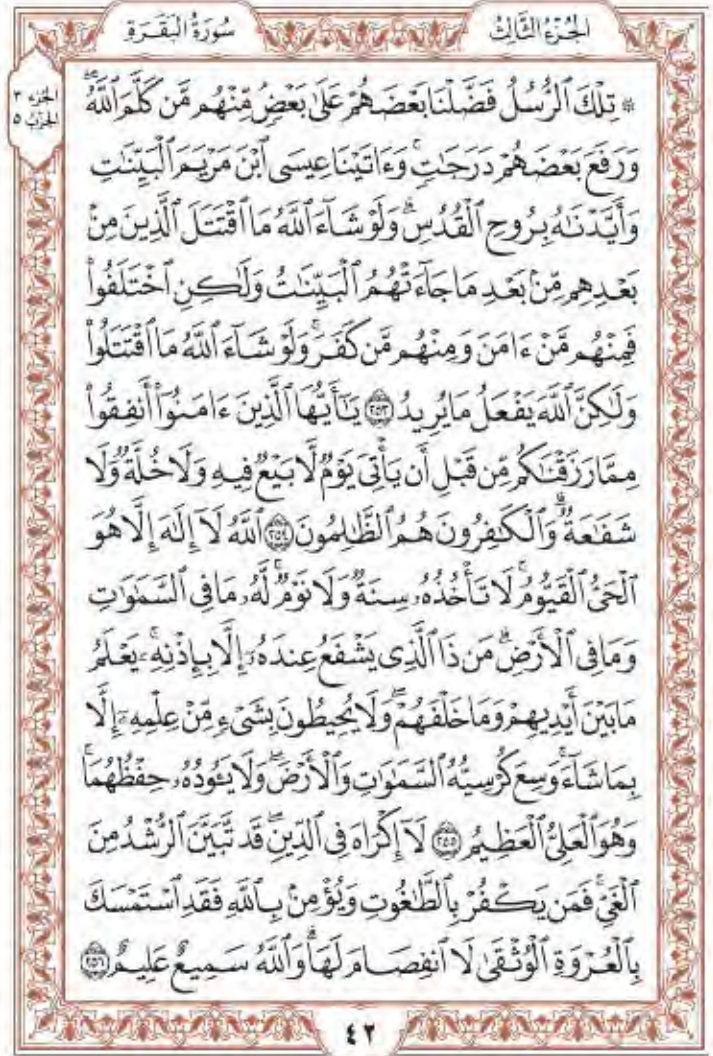 الجزء الثالث
سورة البقرة
الجزء ٣
الحزب ٥
۞ تِلْكَ ٱلرُّسُلُ فَضَّلْنَا بَعْضَهُمْ عَلَىٰ بَعْضٍۘ مِّنْهُم مَّن كَلَّمَ ٱللَّهُۖ
وَرَفَعَ بَعْضَهُمْ دَرَجَٰتٍۚ وَءَاتَيْنَا عِيسَى ٱبْنَ مَرْيَمَ ٱلْبَيِّنَٰتِ
وَأَيَّدْنَٰهُ بِرُوحِ ٱلْقُدُسِۗ وَلَوْ شَآءَ ٱللَّهُ مَا ٱقْتَتَلَ ٱلَّذِينَ مِنۢ
بَعْدِهِم مِّنۢ بَعْدِ مَا جَآءَتْهُمُ ٱلْبَيِّنَٰتُ وَلَٰكِنِ ٱخْتَلَفُوا۟
فَمِنْهُم مَّنْ ءَامَنَ وَمِنْهُم مَّن كَفَرَۚ وَلَوْ شَآءَ ٱللَّهُ مَا ٱقْتَتَلُوا۟
وَلَٰكِنَّ ٱللَّهَ يَفْعَلُ مَا يُرِيدُ ٢٥٣ يَٰٓأَيُّهَا ٱلَّذِينَ ءَامَنُوٓا۟ أَنفِقُوا۟
مِمَّا رَزَقْنَٰكُم مِّن قَبْلِ أَن يَأْتِىَ يَوْمٌ لَّا بَيْعٌ فِيهِ وَلَا خُلَّةٌ وَلَا
شَفَٰعَةٌۗ وَٱلْكَٰفِرُونَ هُمُ ٱلظَّٰلِمُونَ ٢٥٤ ٱللَّهُ لَآ إِلَٰهَ إِلَّا هُوَ
ٱلْحَىُّ ٱلْقَيُّومُۚ لَا تَأْخُذُهُۥ سِنَةٌ وَلَا نَوْمٌۚ لَّهُۥ مَا فِى ٱلسَّمَٰوَٰتِ
وَمَا فِى ٱلْأَرْضِۗ مَن ذَا ٱلَّذِى يَشْفَعُ عِندَهُۥٓ إِلَّا بِإِذْنِهِۦۚ يَعْلَمُ
مَا بَيْنَ أَيْدِيهِمْ وَمَا خَلْفَهُمْۖ وَلَا يُحِيطُونَ بِشَىْءٍ مِّنْ عِلْمِهِۦٓ إِلَّا
بِمَا شَآءَۚ وَسِعَ كُرْسِيُّهُ ٱلسَّمَٰوَٰتِ وَٱلْأَرْضَۖ وَلَا يَـُٔودُهُۥ حِفْظُهُمَاۚ
وَهُوَ ٱلْعَلِىُّ ٱلْعَظِيمُ ٢٥٥ لَآ إِكْرَاهَ فِى ٱلدِّينِۖ قَد تَّبَيَّنَ ٱلرُّشْدُ مِنَ
ٱلْغَىِّۚ فَمَن يَكْفُرْ بِٱلطَّٰغُوتِ وَيُؤْمِنۢ بِٱللَّهِ فَقَدِ ٱسْتَمْسَكَ
بِٱلْعُرْوَةِ ٱلْوُثْقَىٰ لَا ٱنفِصَامَ لَهَاۗ وَٱللَّهُ سَمِيعٌ عَلِيمٌ ٢٥٦
٤٢